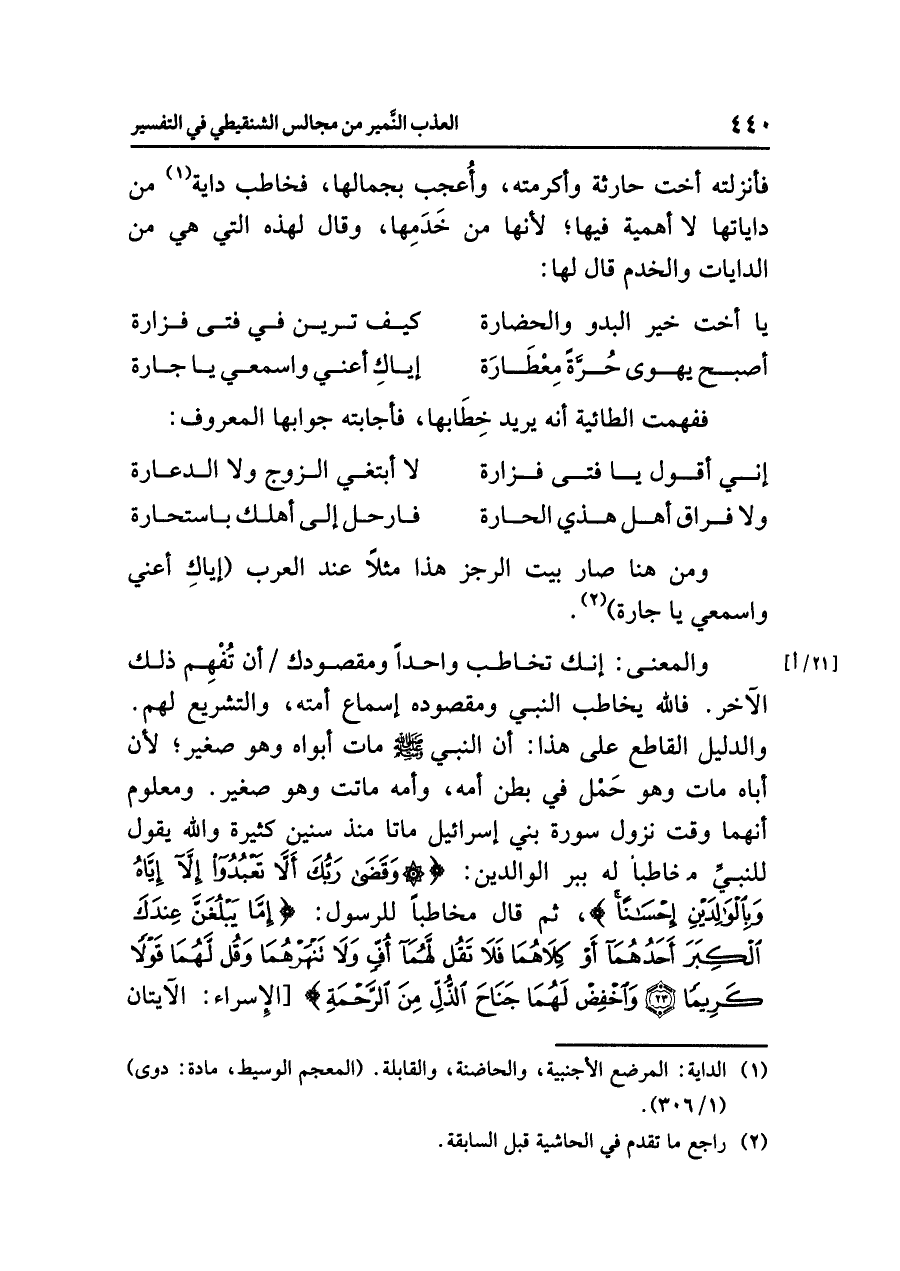 ٤٤٠ العذب النَّمير من مجالس الشنقيطي في التفسير
فأنزلته أخت حارثة وأكرمته، وأُعجب بجمالها، فخاطب داية(١) من
داياتها لا أهمية فيها؛ لأنها من خَدَمِها، وقال لهذه التي هي من
الدايات والخدم قال لها:
يا أخت خير البدو والحضارة كيف ترين في فتى فزارة
أصبح يهوى حُرَّةً مِعْطَارَة إياكِ أعني واسمعي يا جارة
ففهمت الطائية أنه يريد خِطَابها، فأجابته جوابها المعروف:
إني أقول يا فتى فزارة لا أبتغي الزوج ولا الدعارة
ولا فراق أهل هذي الحارة فارحل إلى أهلك باستحارة
ومن هنا صار بيت الرجز هذا مثلاً عند العرب (إياكِ أعني
واسمعي يا جارة)(٢).
[٢١/أ] والمعنى: إنك تخاطب واحداً ومقصودك / أن تُفْهِم ذلك
الآخر. فالله يخاطب النبي ومقصوده إسماع أمته، والتشريع لهم.
والدليل القاطع على هذا: أن النبي ﷺ مات أبواه وهو صغير؛ لأن
أباه مات وهو حَمْل في بطن أمه، وأمه ماتت وهو صغير. ومعلوم
أنهما وقت نزول سورة بني إسرائيل ماتا منذ سنين كثيرة والله يقول
للنبيِّ مخاطباً له ببر الوالدين: ﴿۞ وَقَضَىٰ رَبُّكَ أَلَّا تَعْبُدُوٓا۟ إِلَّآ إِيَّاهُ
وَبِٱلْوَٰلِدَيْنِ إِحْسَٰنًا ۚ﴾، ثم قال مخاطباً للرسول: ﴿إِمَّا يَبْلُغَنَّ عِندَكَ
ٱلْكِبَرَ أَحَدُهُمَآ أَوْ كِلَاهُمَا فَلَا تَقُل لَّهُمَآ أُفٍّ وَلَا نَنْهَرْهُمَا وَقُل لَّهُمَا قَوْلًا
كَرِيمًا ﴿٢٣﴾ وَٱخْفِضْ لَهُمَا جَنَاحَ ٱلذُّلِّ مِنَ ٱلرَّحْمَةِ﴾ [الإسراء: الآيتان
(١) الداية: المرضع الأجنبية، والحاضنة، والقابلة. (المعجم الوسيط، مادة: دوى)
(٣٠٦/١).
(٢) راجع ما تقدم في الحاشية قبل السابقة.